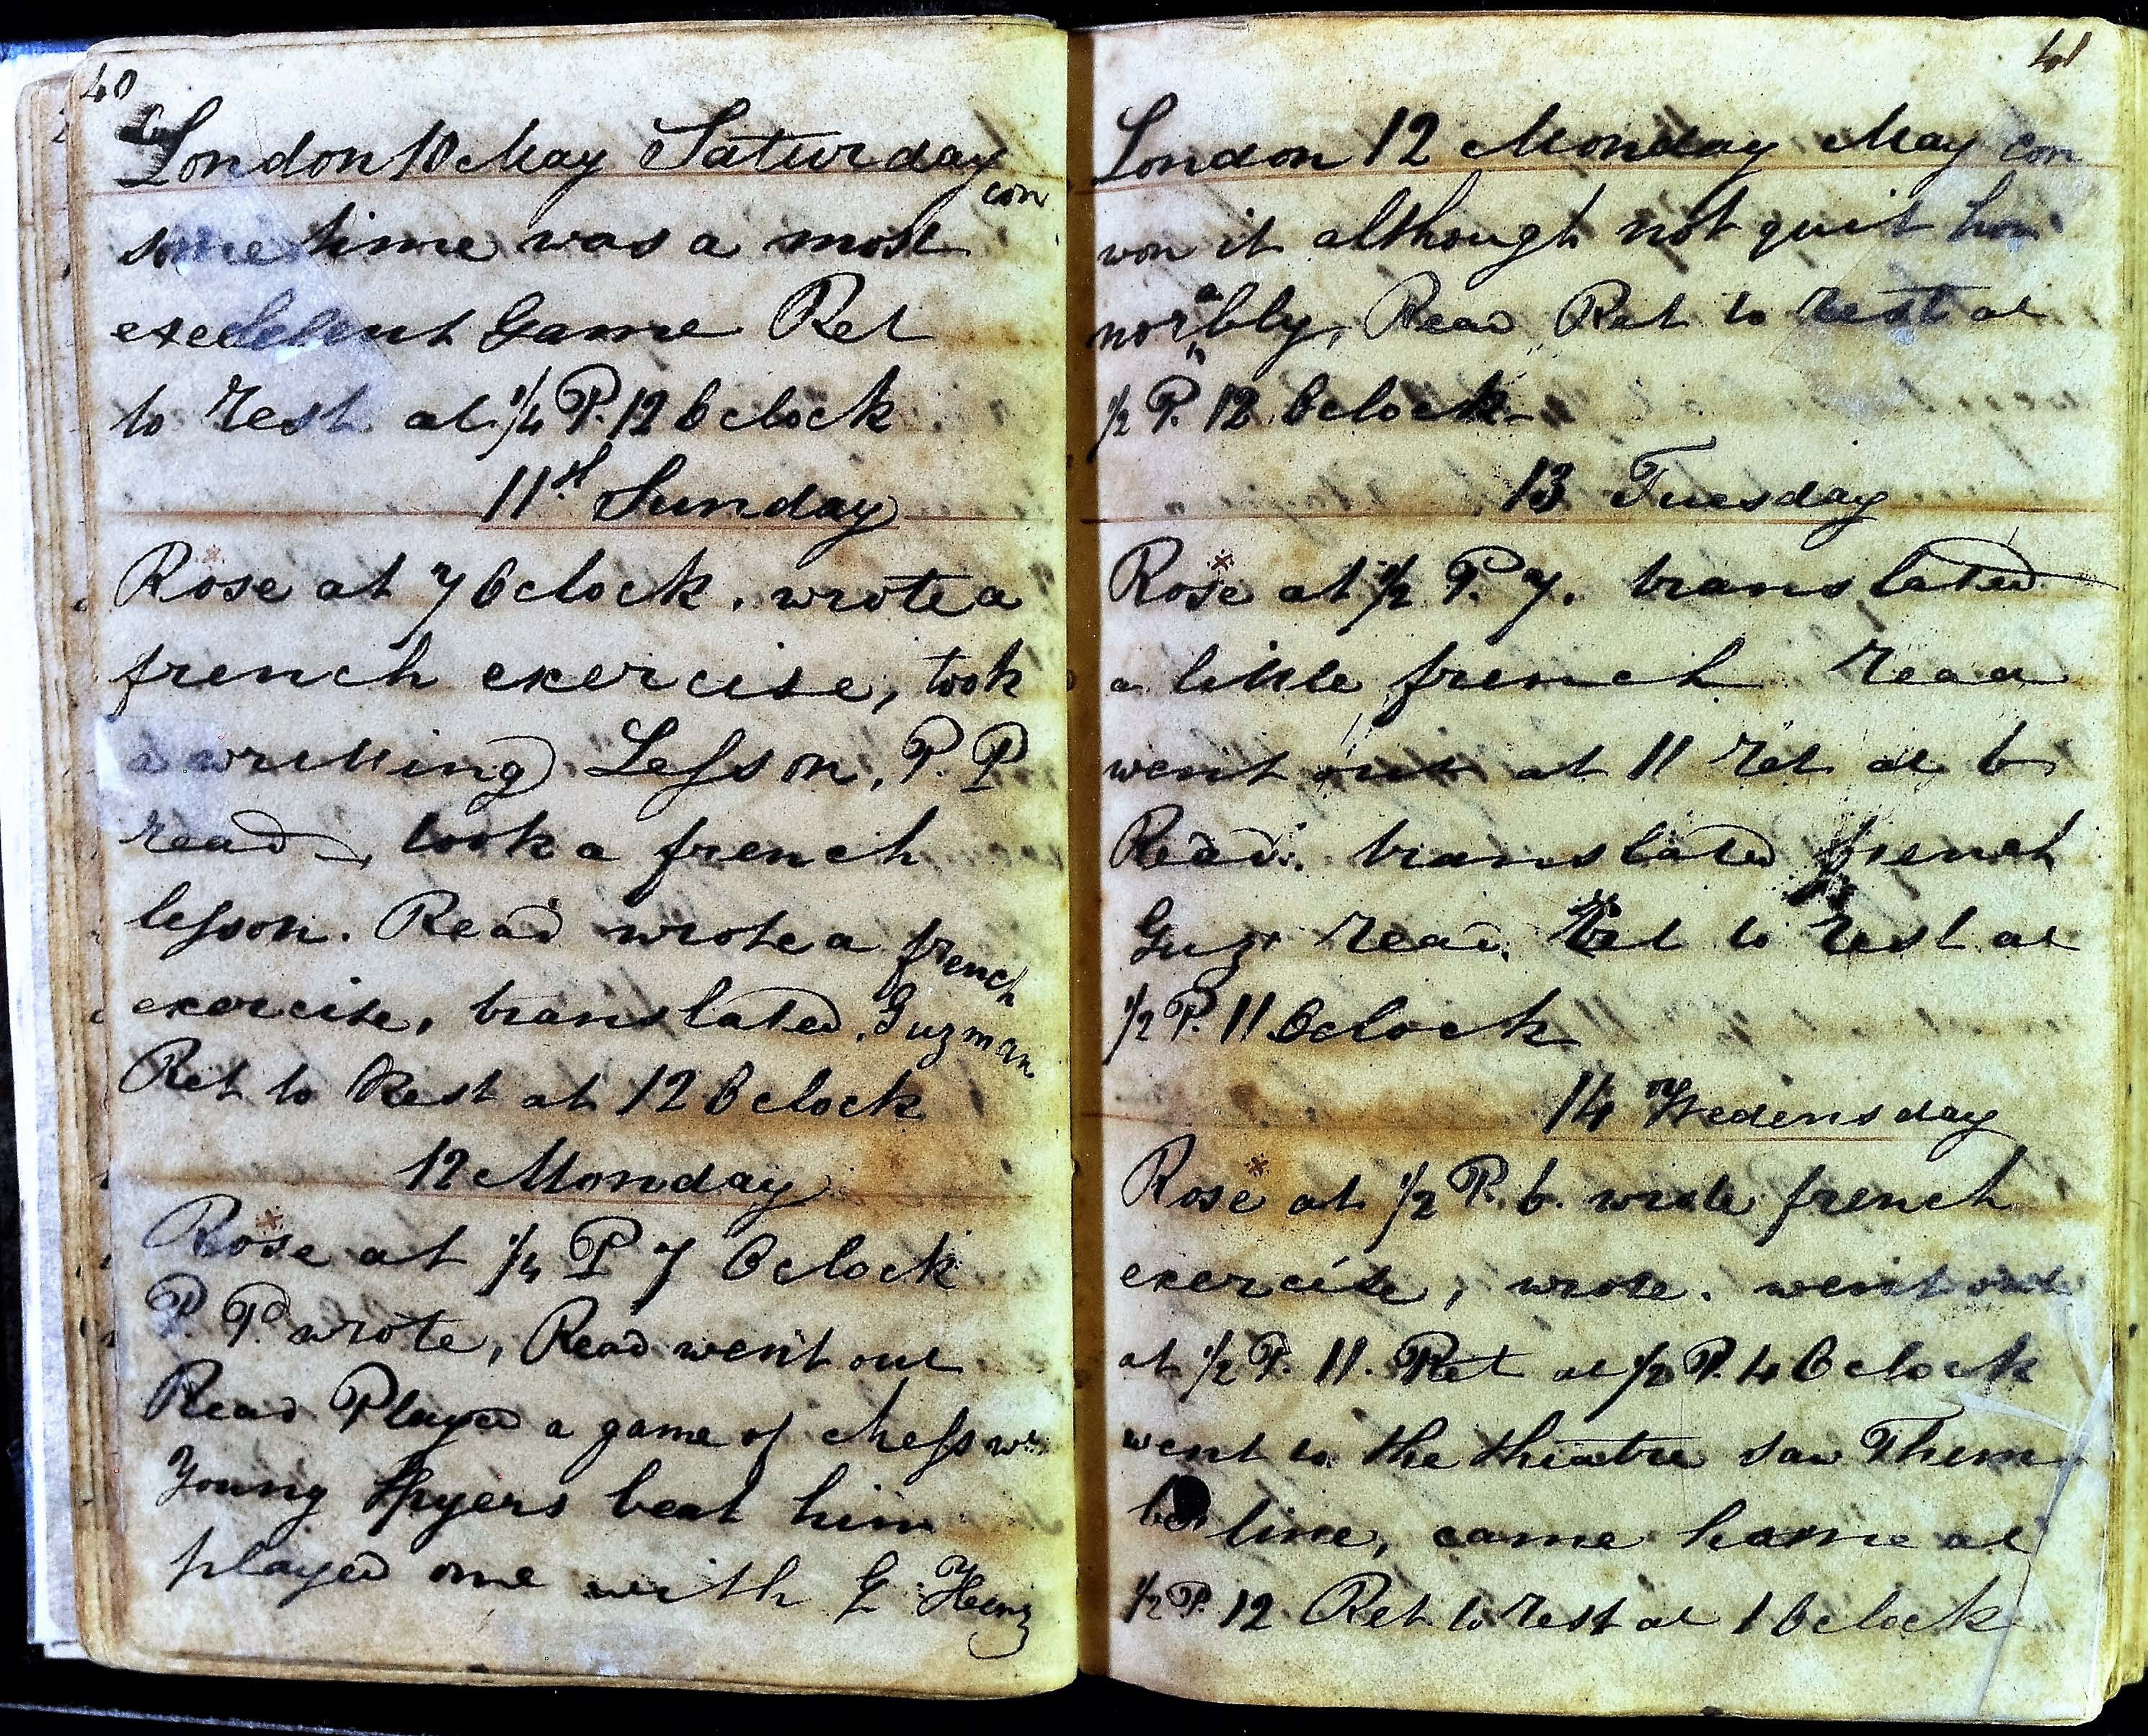 40
London 10 May Saturday
con
some time was a most
excellent Game Ret
to rest at 1/4 P. 12 Oclock
11th Sunday
Rose at 7 Oclock. wrote a
french exercise, took
a writting Lesson, P. P
read, took a french
lesson. Read wrote a french
exercise, translated. Guzman
Ret to Rest at 12 Oclock
12 Monday
Rose at 1/4 P 7 Oclock
P. P. wrote, Read went out
Read Played a game of chess
Young Spyers beat him
played one with
41
London 12 Monday May con
won it although not quit hon
norably, Read Ret to rest at
1/2 P. 12 Oclock
13 Tuesday
Rose at 1/2 P. 7. translated
a little french read
went out at 11 ret at 6
Read. translated french
Guz read. Ret to rest at
1/2 P. 11 Oclock
14 Wedensday
Rose at 1/2 P. 6. wrote french
exercise, wrote. went out
at 1/2 P. 11. Ret at 1/2 P. 4 Oclock
went to the theatre saw Them
line, came home at
1/2 P. 12 Ret to rest at 1 Oclock